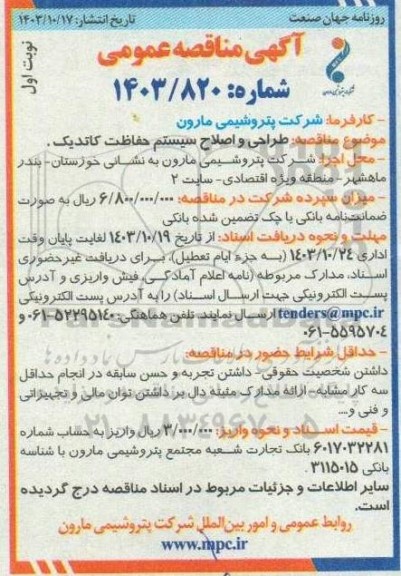 روزنامه جهان صنعت
تاریخ انتشار: ۱۴۰۳/۱۰/۱۷
نوبت اول
آگهی مناقصه عمومی
شماره: ۱۴۰۳/۸۲۰
- کارفرما: شرکت پتروشیمی مارون
موضوع مناقصه: طراحی و اصلاح سیستم حفاظت کاتدیک .
- محل اجرا: شرکت پتروشیمی مارون به نشانی خوزستان- بندر
ماهشهر -منطقه ویژه اقتصادی- سایت ۲
- میزان سپرده شرکت در مناقصه: ۶/۸۰۰/۰۰۰/۰۰۰ ریال به صورت
ضمانت‌نامه بانکی یا چک تضمین شده بانکی
مهلت و نحوه دریافت اسناد: از تاریخ ۱۴۰۳/۱۰/۱۹ لغایت پایان وقت
اداری ۱۴۰۳/۱۰/۲۴ (به جزء ایام تعطیل)، برای دریافت غیرحضوری
اسناد، مدارک مربوطه (نامه اعلام آمادگی، فیش واریزی و آدرس
پست الکترونیکی جهت ارسال اسناد) را به آدرس پست الکترونیکی
tenders@mpc.ir ارسال نمایند. تلفن هماهنگی: ۰۶۱-۵۲۲۹۵۱۴۰ و
۰۶۱-۵۵۹۵۷۰۴
- حداقل شرایط حضور در مناقصه:
داشتن شخصیت حقوقی- داشتن تجربه و حسن سابقه در انجام حداقل
سه کار مشابه- ارائه مدارک مثبته دال بر داشتن توان مالی و تجهیزاتی
و فنی و....
- قیمت اسناد و نحوه واریز: ۳/۰۰۰/۰۰۰ ریال واریز به حساب شماره
۶۰۱۷۰۳۲۲۸۱ بانک تجارت شعبه مجتمع پتروشیمی مارون با شناسه
بانکی ۳۱۱۵۰۱۵ .
سایر اطلاعات و جزئیات مربوط در اسناد مناقصه درج گردیده
است.
روابط عمومی و امور بین‌الملل شرکت پتروشیمی مارون
www.mpc.ir